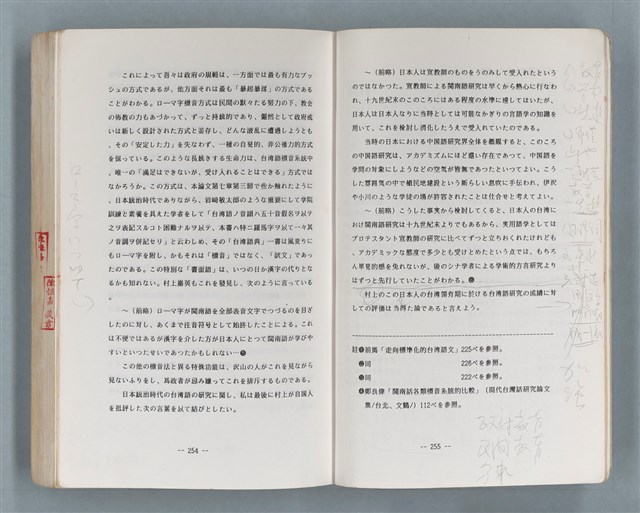 これによって吾々は政府の規範は、一方面では最も有力なプッ
シュの方式であるが、他方面それは最も「暴起暴落」の方式である
ことがわかる。ローマ字標音方式は民間の黙々たる努力の下、教会
の佈教の力もあづかって、ずっと持続的であり、儼然として政府或
いは新しく設計された方式と並存し、どんな波乱に遭遇しようとも
、その「安定した力」を失なわず、一種の自発的、非公権力的方式
を保っている。このような長続きする生命力は、台湾語標音系統中
、唯一の「満足はできないが、受け入れることはできる」方式では
なかろうか。この方式は、本論文第七章第三節で些か触れたように
、日本統治時代でありながら、岩崎敬太郎のような重要にして学院
訓練と素養を具えた学者をして「台湾語ノ音韻ハ五十音假名ヲ以テ
之ヲ表記スルコト困難ナルヲ以テ、本書ハ特ニ羅馬字ヲ以テ一々其
ノ音調ヲ併記セリ」と云わしめ、その「台湾語典」一書は風変りに
もローマ字を附し、かもそれは「標音」ではなく、「訳文」であっ
たのである。この特別な「書面語」は、いつの日か漢字の代りとな
るかも知れない。村上嘉英もこれを發見し、次のように言っている
。
〜(前略)ローマ字が閩南語を全部表音文字でつづるのを目ざ
したのに対し、あくまで注音符号として始終したことによる。これ
は不便ではあるが漢字を介した方が日本人にとって閩南語が学びや
すいといったせいであったかもしれない…
この他の標音法と異る特殊功能は、沢山の人がこれを見ながら
見ないふりをし、為政者が忌み嫌ってこれを排斥するものである。
日本統治時代の台湾語の研究に関し、私は最後に村上が自国人
を批評した次の言葉を以て結びとしたい。
-- 254 --
〜(前略)日本人は宣教師のものをうのみして受入れたという
のではなかつた。宣教師による閩南語研究は早くから熱心に行なわ
れ、十九世紀末のこのころにはある程度の水準に達してはいたが、
日本人は日本人なりに当時としては可能なかぎりの言語学の知識を
用いて、これを検討し消化したうえで受入れていたのである。
当時の日本における中国語研究界全体を概観すると、このころ
の中国語研究は、アカデミズムにほど遠い存在であって、中国語を
学問の対象にしようなどの空気が皆無であったといってよい。こう
した雰囲気の中で植民地建設という新らしい息吹に手伝われ、伊沢
や小川のような学徒の踊が許容されたことは仕合と考えてよい。
〜(前略)こうした事実から検討してくると、日本人の台湾に
おけ閩南語研究は十九世紀末よりでもあるから、実用語学としては
プロテスタント宣教師の研究に比べてずっと立ちおくれたけれども
、アカデミックな態度で多少とも受けとめたという点では、もちろ
ん草見的感を免れないが、後のシナ学者による学術的方言研究より
はずっと先行していたことがわかる。
村上のこの日本人の台湾領有期に於ける台湾語研究の成績に対
しての評価は当得た論であると言えよう。
註❶前掲「走向標準化的台湾語文」225ぺを参照。
❷同 226ぺを参照。
❸同 222ぺを参照。
❹鄭良偉「閩南話各類標音系統的比較」(現代台灣話研究論文
集/台北、文鶴/) 112ぺを参照。
-- 255 --